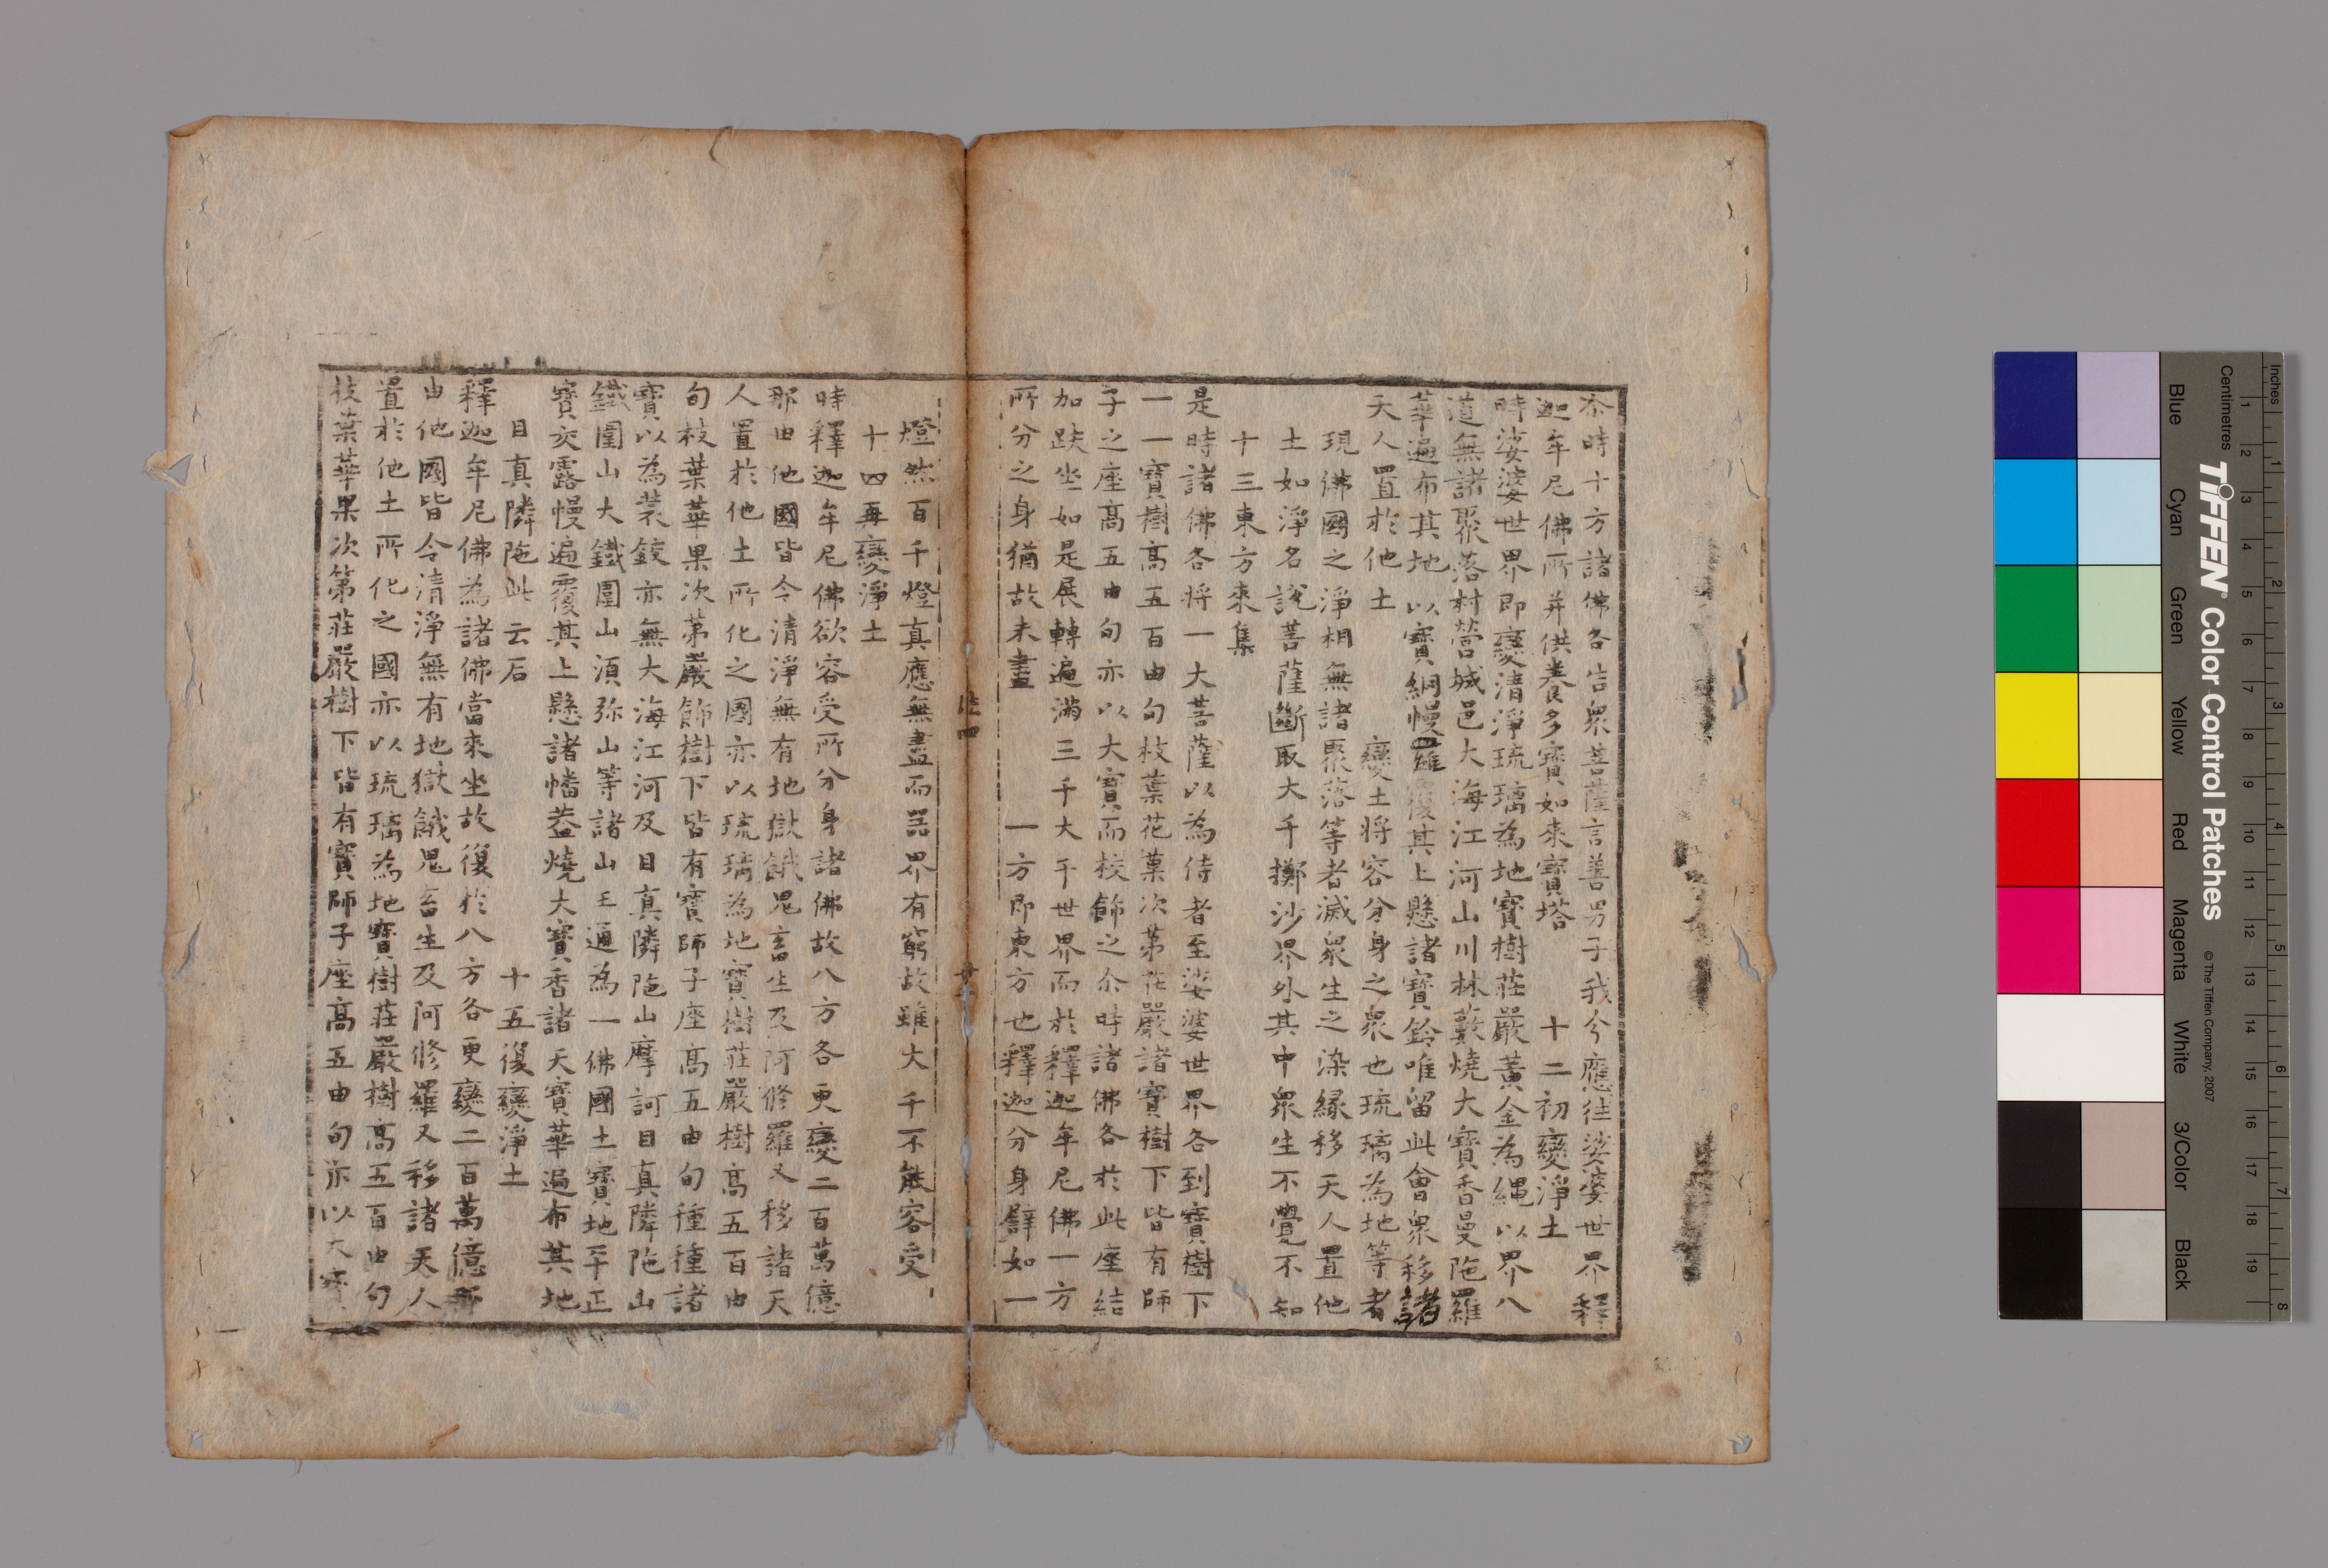 尒時十方諸佛各告衆菩薩言善男子我今應往娑婆世界釋
迦牟尼佛所并供養多寶如來寶塔 十二初變淨土
時娑婆世界即變清淨琉璃為地寶樹莊嚴黃金為繩以界八
道無諸聚落村營城邑大海江河山川林藪燒大寶香曼陁羅
華遍布其地以寶網幔羅覆其上懸諸寶鈴唯留此會衆移諸
天人置於他土 變土將容分身之衆也琉璃為地等者
現佛國之淨相無諸聚落等者滅衆生之染緣移天人置他
土如淨名說菩薩斷取大千擲沙界外其中衆生不覺不知
十三東方來集
是時諸佛各將一大菩薩以為侍者至娑婆世界各到寶樹下
一一寶樹高五百由旬枝葉花菓次第莊嚴諸寶樹下皆有師
子之座高五由旬亦以大寶而校飾之尒時諸佛各於此座結
加趺坐如是展轉遍滿三千大千世界而於釋迦牟尼佛一方
所分之身猶故未盡 一方即東方也釋迦分身譬如一
法四
燈然百千燈真應無盡而器界有窮故雖大千不能容受
十四再變淨土
時釋迦牟尼佛欲容受所分身諸佛故八方各更變二百萬億
那由他國皆令清淨無有地獄餓鬼畜生及阿修羅又移諸天
人置於他土所化之國亦以琉璃為地寶樹莊嚴樹高五百由
旬枝葉華果次第嚴飾樹下皆有寶師子座高五由旬種種諸
寶以為裝鉸亦無大海江河及目真隣陁山摩訶目真隣陁山
鐵圍山大鐵圍山湏弥山等諸山王通為一佛國土寶地平正
寶交露幔遍覆其上懸諸幡盖燒大寶香諸天寶華遍布其地
目真隣陁此云石 十五復變淨土
釋迦牟尼佛為諸佛當來坐故復於八方各更變二百萬億那
由他國皆令清淨無有地獄餓鬼畜生及阿修羅又移諸天人
置於他土所化之國亦以琉璃為地寶樹莊嚴樹高五百由旬
枝葉華果次第莊嚴樹下皆有寶師子座高五由旬亦以大寶
Inches
Centimetres
TIFFEN® Color Control Patches
© The Tiffen Company, 2007
Blue Cyan Green Yellow Red Magenta White 3/Color Black
1 2 3 4 5 6 7 8
1 2 3 4 5 6 7 8 9 10 11 12 13 14 15 16 17 18 19